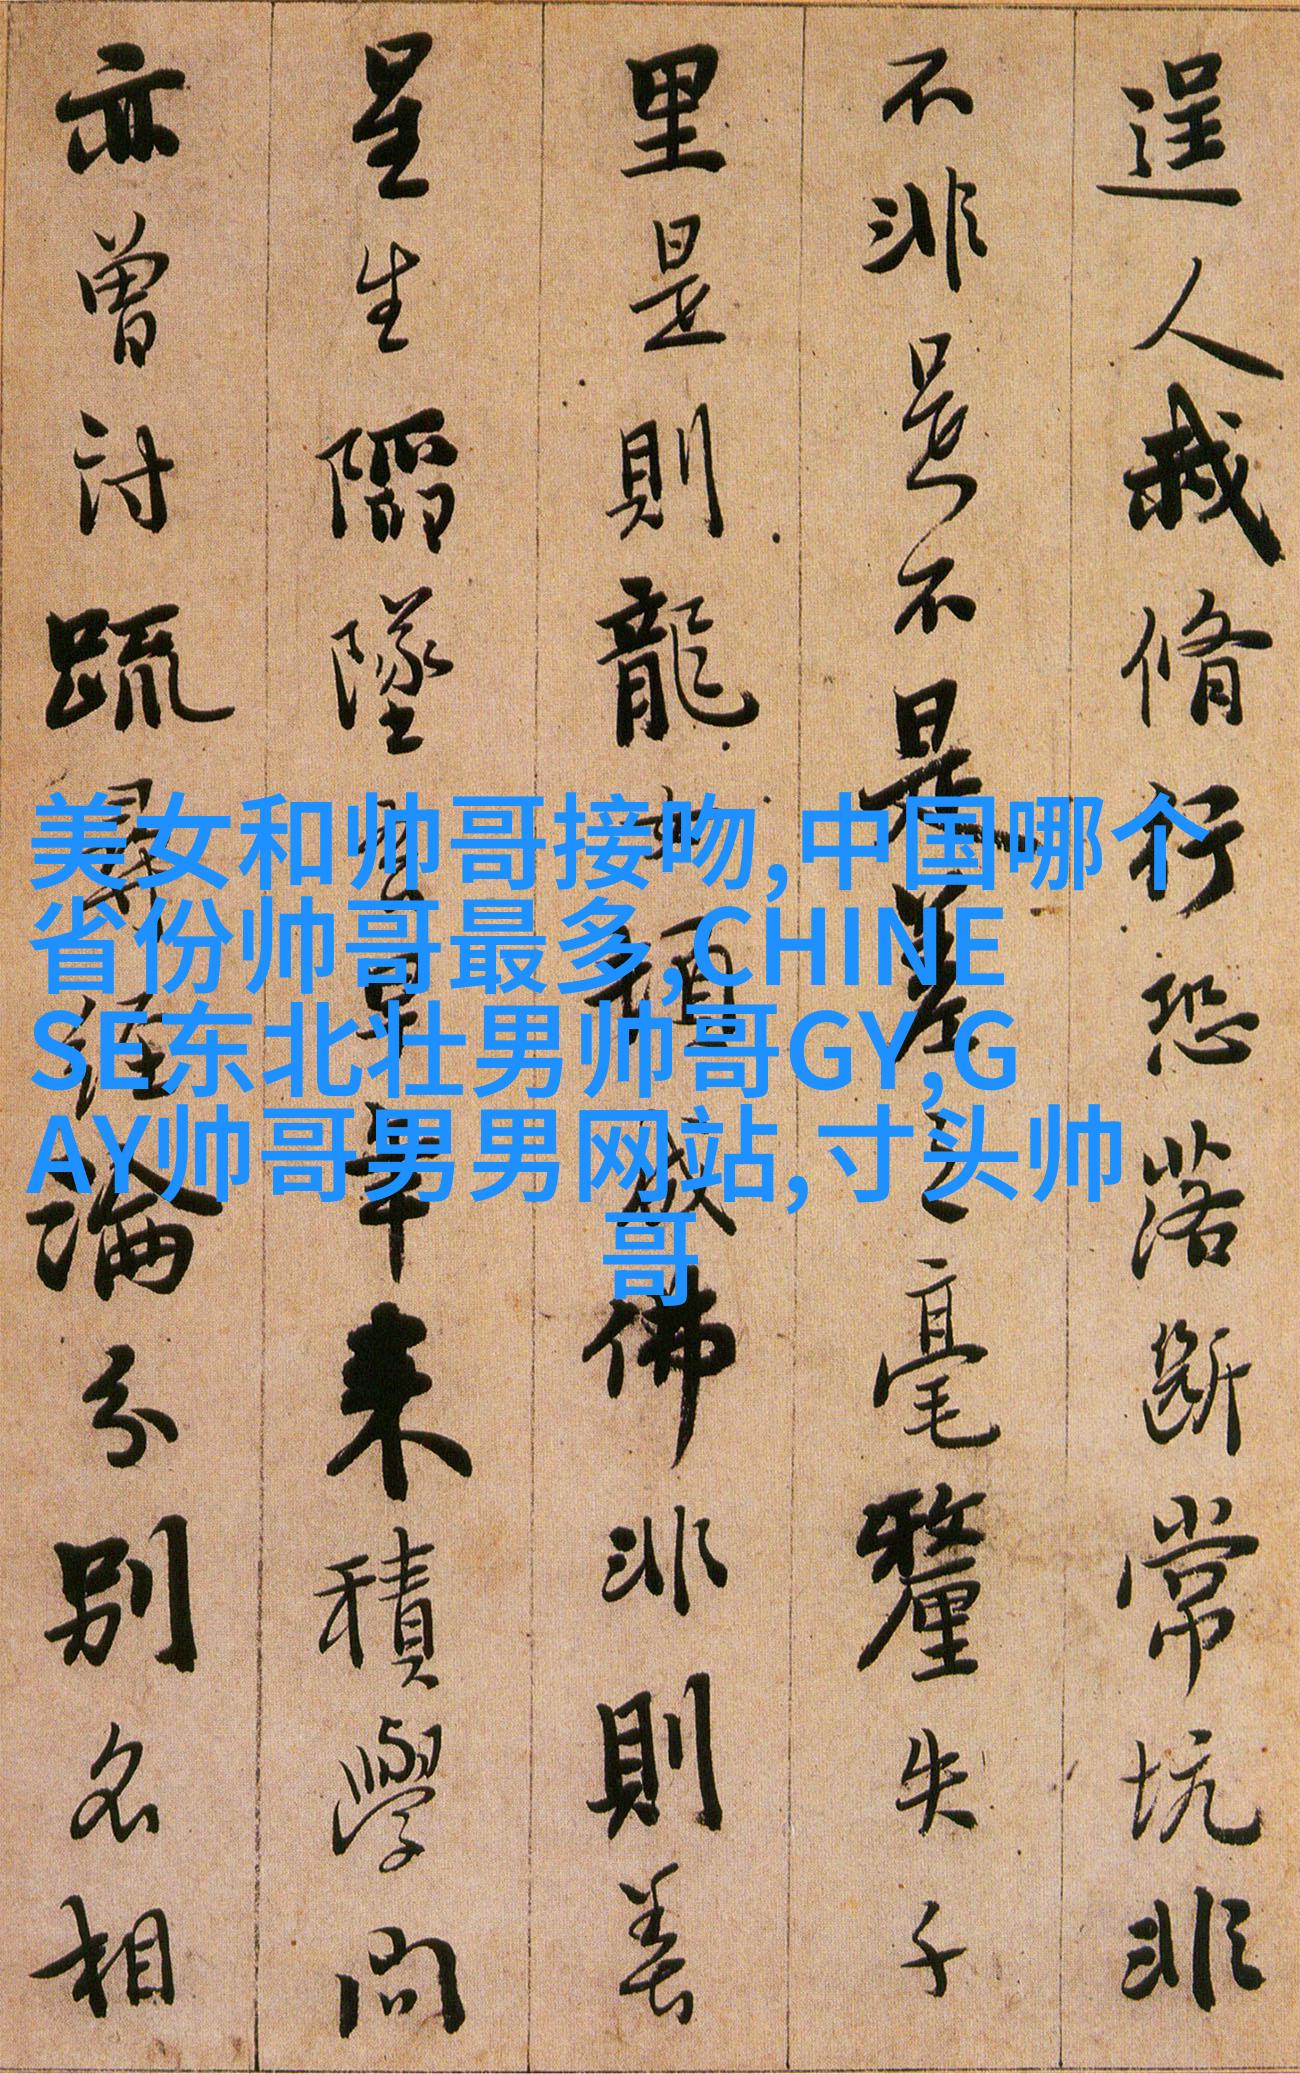 逞人我脩行恐落斷常坑非
不非是不是差之毫釐失千
里是則龍女頓成佛非則善
星生陷墜吾早年来積學問
亦曾討疏尋經論分別名相
美女和帅哥接吻,中国哪个
省份帅哥最多,CHINE
SE东北壮男帅哥GY,G
AY帅哥男男网站,寸头帅
哥